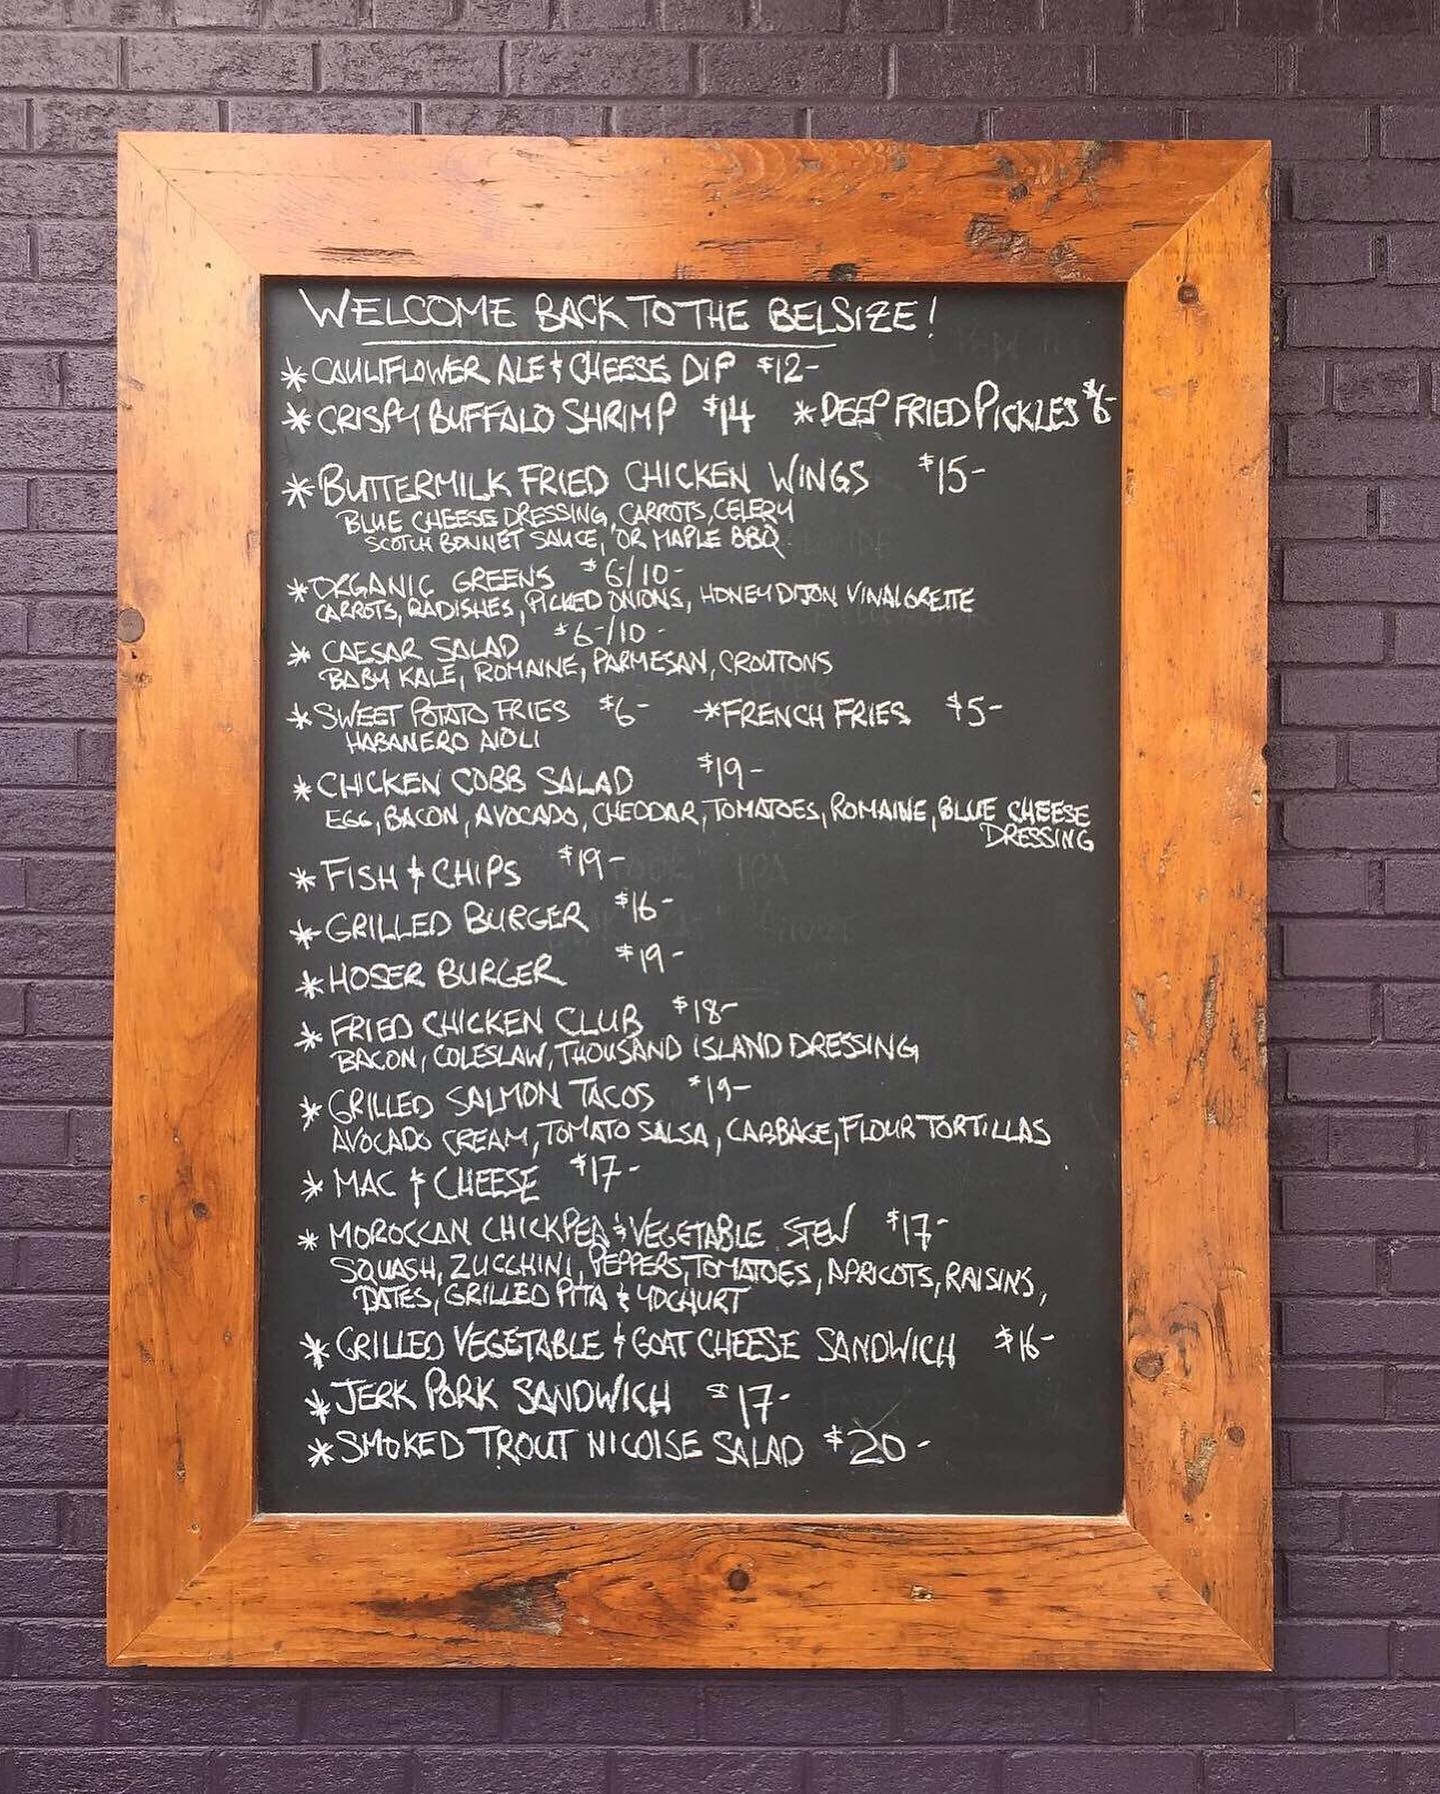 WELCOME BACK TO THE BELSIZE!
* CAULIFLOWER ALE & CHEESE DIP $12-
* CRISPY BUFFALO SHRIMP $14 * DEEP FRIED PICKLES $6-
* BUTTERMILK FRIED CHICKEN WINGS $15-
BLUE CHEESE DRESSING, CARROTS, CELERY
SCOTCH BONNET SAUCE, OR MAPLE BBQ
* ORGANIC GREENS $6/10-
CARROTS, RADISHES, PICKED ONIONS, HONEY DIJON VINAIGRETTE
* CAESAR SALAD $6-/10-
BABY KALE, ROMAINE, PARMESAN, CROUTONS
* SWEET POTATO FRIES $6- * FRENCH FRIES $5-
HABANERO AIOLI
* CHICKEN COBB SALAD $19-
EGG, BACON, AVOCADO, CHEDDAR, TOMATOES, ROMAINE, BLUE CHEESE
DRESSING
* FISH & CHIPS $19-
* GRILLED BURGER $16-
* HOSER BURGER $19-
* FRIED CHICKEN CLUB $18-
BACON, COLESLAW, THOUSAND ISLAND DRESSING
* GRILLED SALMON TACOS $19-
AVOCADO CREAM, TOMATO SALSA, CABBAGE, FLOUR TORTILLAS
* MAC & CHEESE $17-
* MOROCCAN CHICKPEA & VEGETABLE STEW $17-
SQUASH, ZUCCHINI, PEPPERS, TOMATOES, APRICOTS, RAISINS,
DATES, GRILLED PITA & YOGHURT
* GRILLED VEGETABLE & GOAT CHEESE SANDWICH $16-
* JERK PORK SANDWICH $17-
* SMOKED TROUT NICOISE SALAD $20-